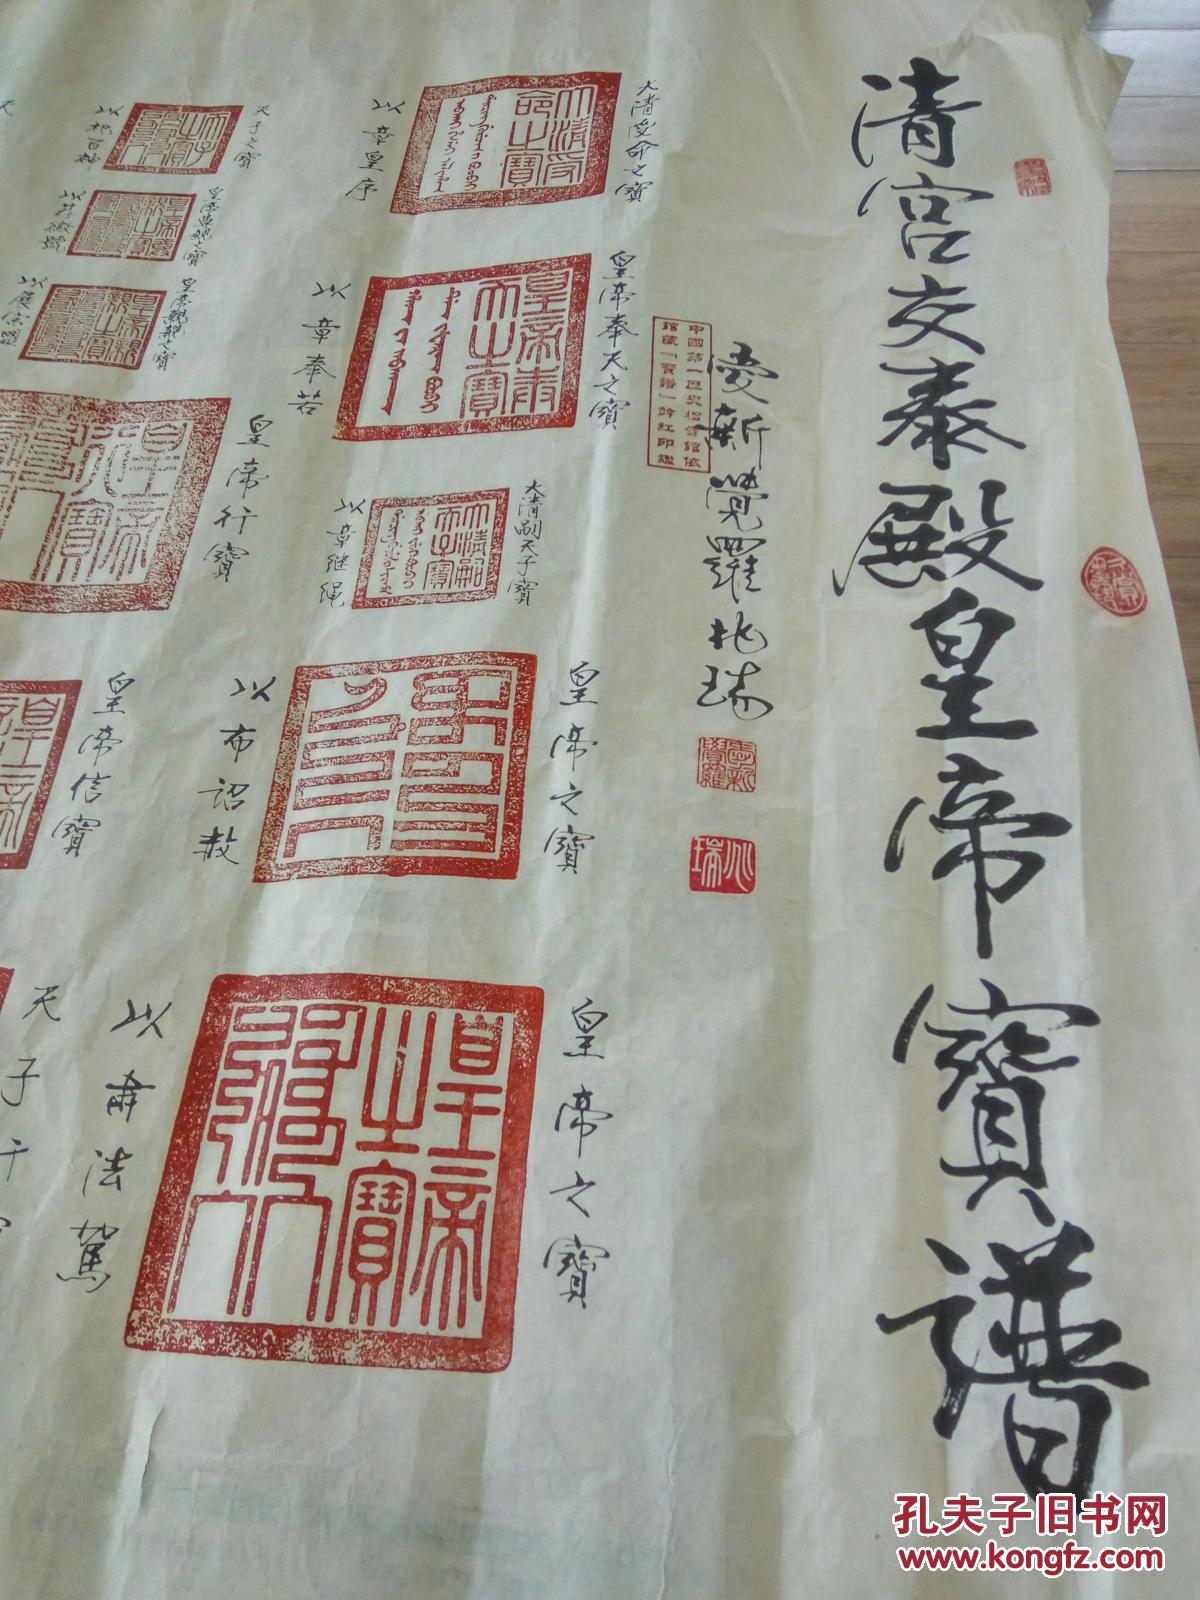 清宮交泰殿皇帝寶譜
愛新覺羅兆瑞
中國第一歷史檔案館依
館藏「寶譜」鈐紅印鑑
大清受命之寶
以章皇序
皇帝奉天之寶
以章奉若
大清嗣天子寶
以章繼繩
皇帝之寶
以布詔赦
皇帝之寶
以肅法駕
天子之寶
以祀百神
皇帝尊親之寶
以薦徽號
皇帝親親之寶
以展宗盟
皇帝行寶
皇帝信寶
天子行
孔夫子旧书网
www.kongfz.com